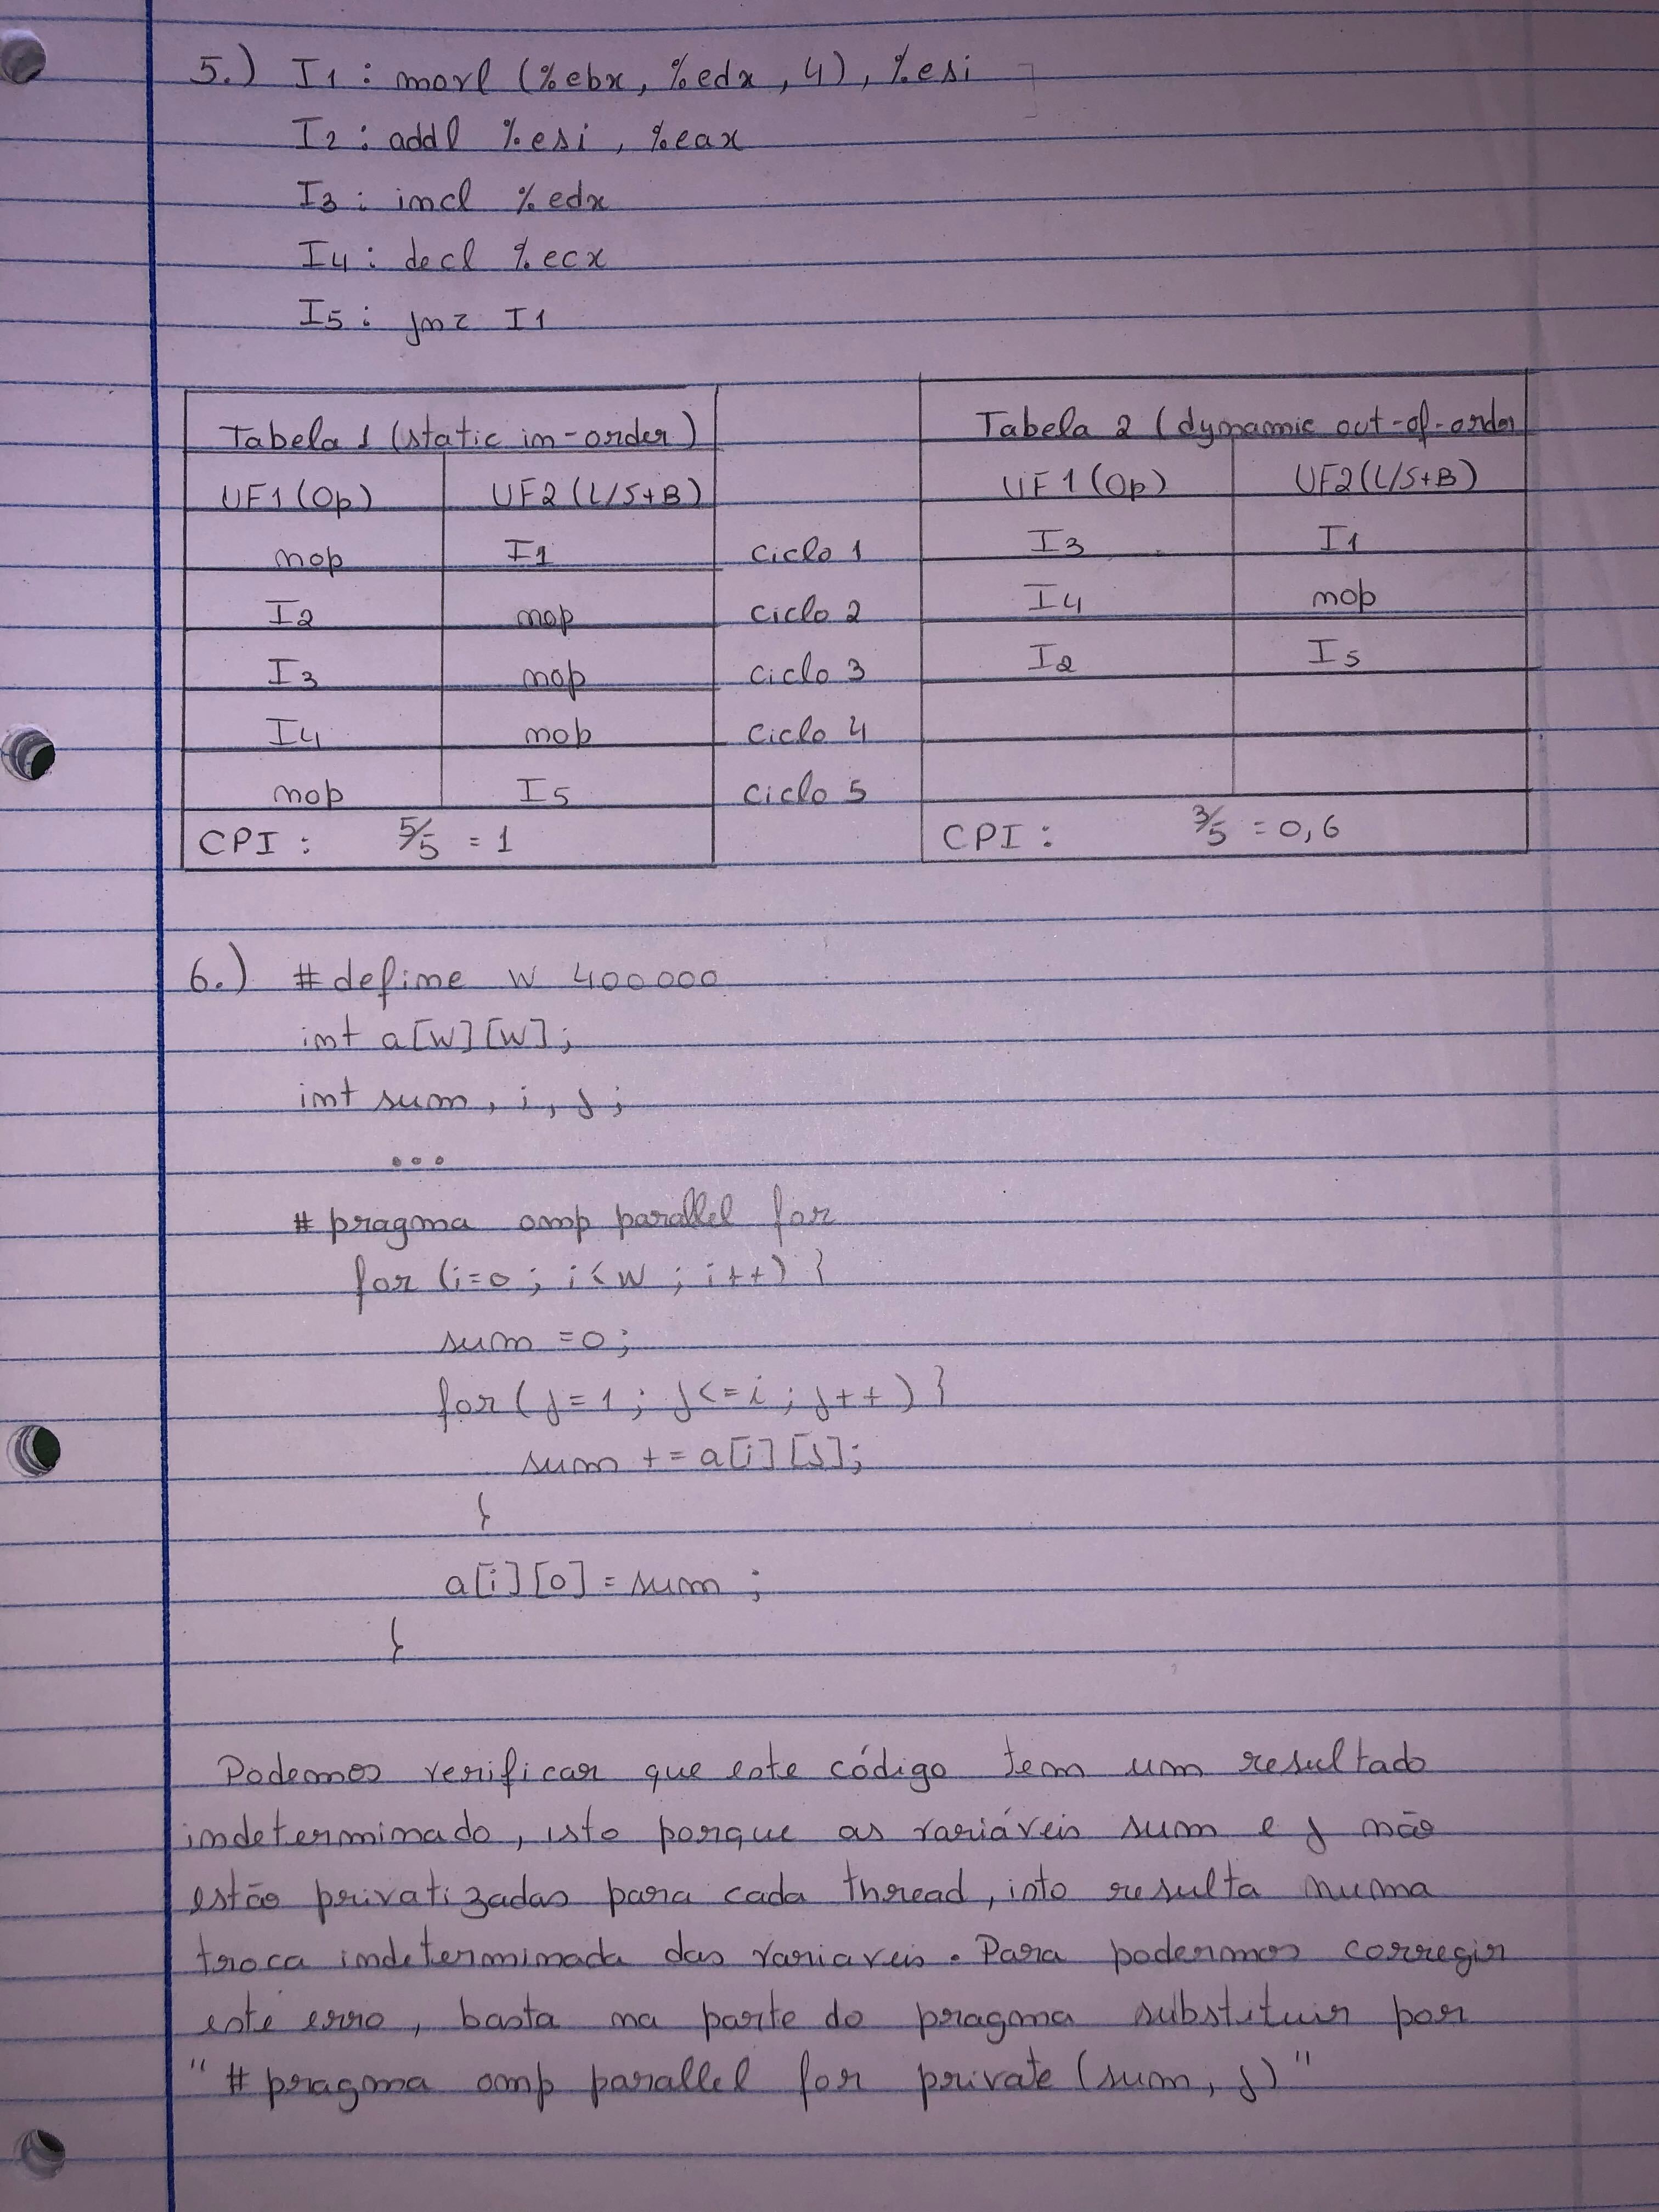 5.) I1 : movl (%ebx, %edx, 4), %esi
I2 : addl %esi, %eax
I3 : incl %edx
I4 : decl %ecx
I5 : jnz I1
Tabela 1 (static in-order) Tabela 2 (dynamic out-of-order
UF1 (Op) UF2 (L/S+B) UF1 (Op) UF2 (L/S+B)
nop I1 ciclo 1 I3 I1
I2 nop ciclo 2 I4 nop
I3 nop ciclo 3 I2 I5
I4 nop ciclo 4
nop I5 ciclo 5
CPI : 5/5 = 1 CPI : 3/5 = 0,6
6.) #define W 400000
int a[W][W];
int sum, i, j;
...
# pragma omp parallel for
for (i=0 ; i<W ; i++) {
sum = 0;
for (j=1 ; j<=i ; j++) {
sum += a[i][j];
}
a[i][0] = sum ;
}
Podemos verificar que este código tem um resultado
indeterminado, isto porque as variáveis sum e j não
estão privatizadas para cada thread, isto resulta numa
troca indeterminada das variaveis. Para podermos corregir
este erro, basta na parte do pragma substituir por
"# pragma omp parallel for private (sum, j)"